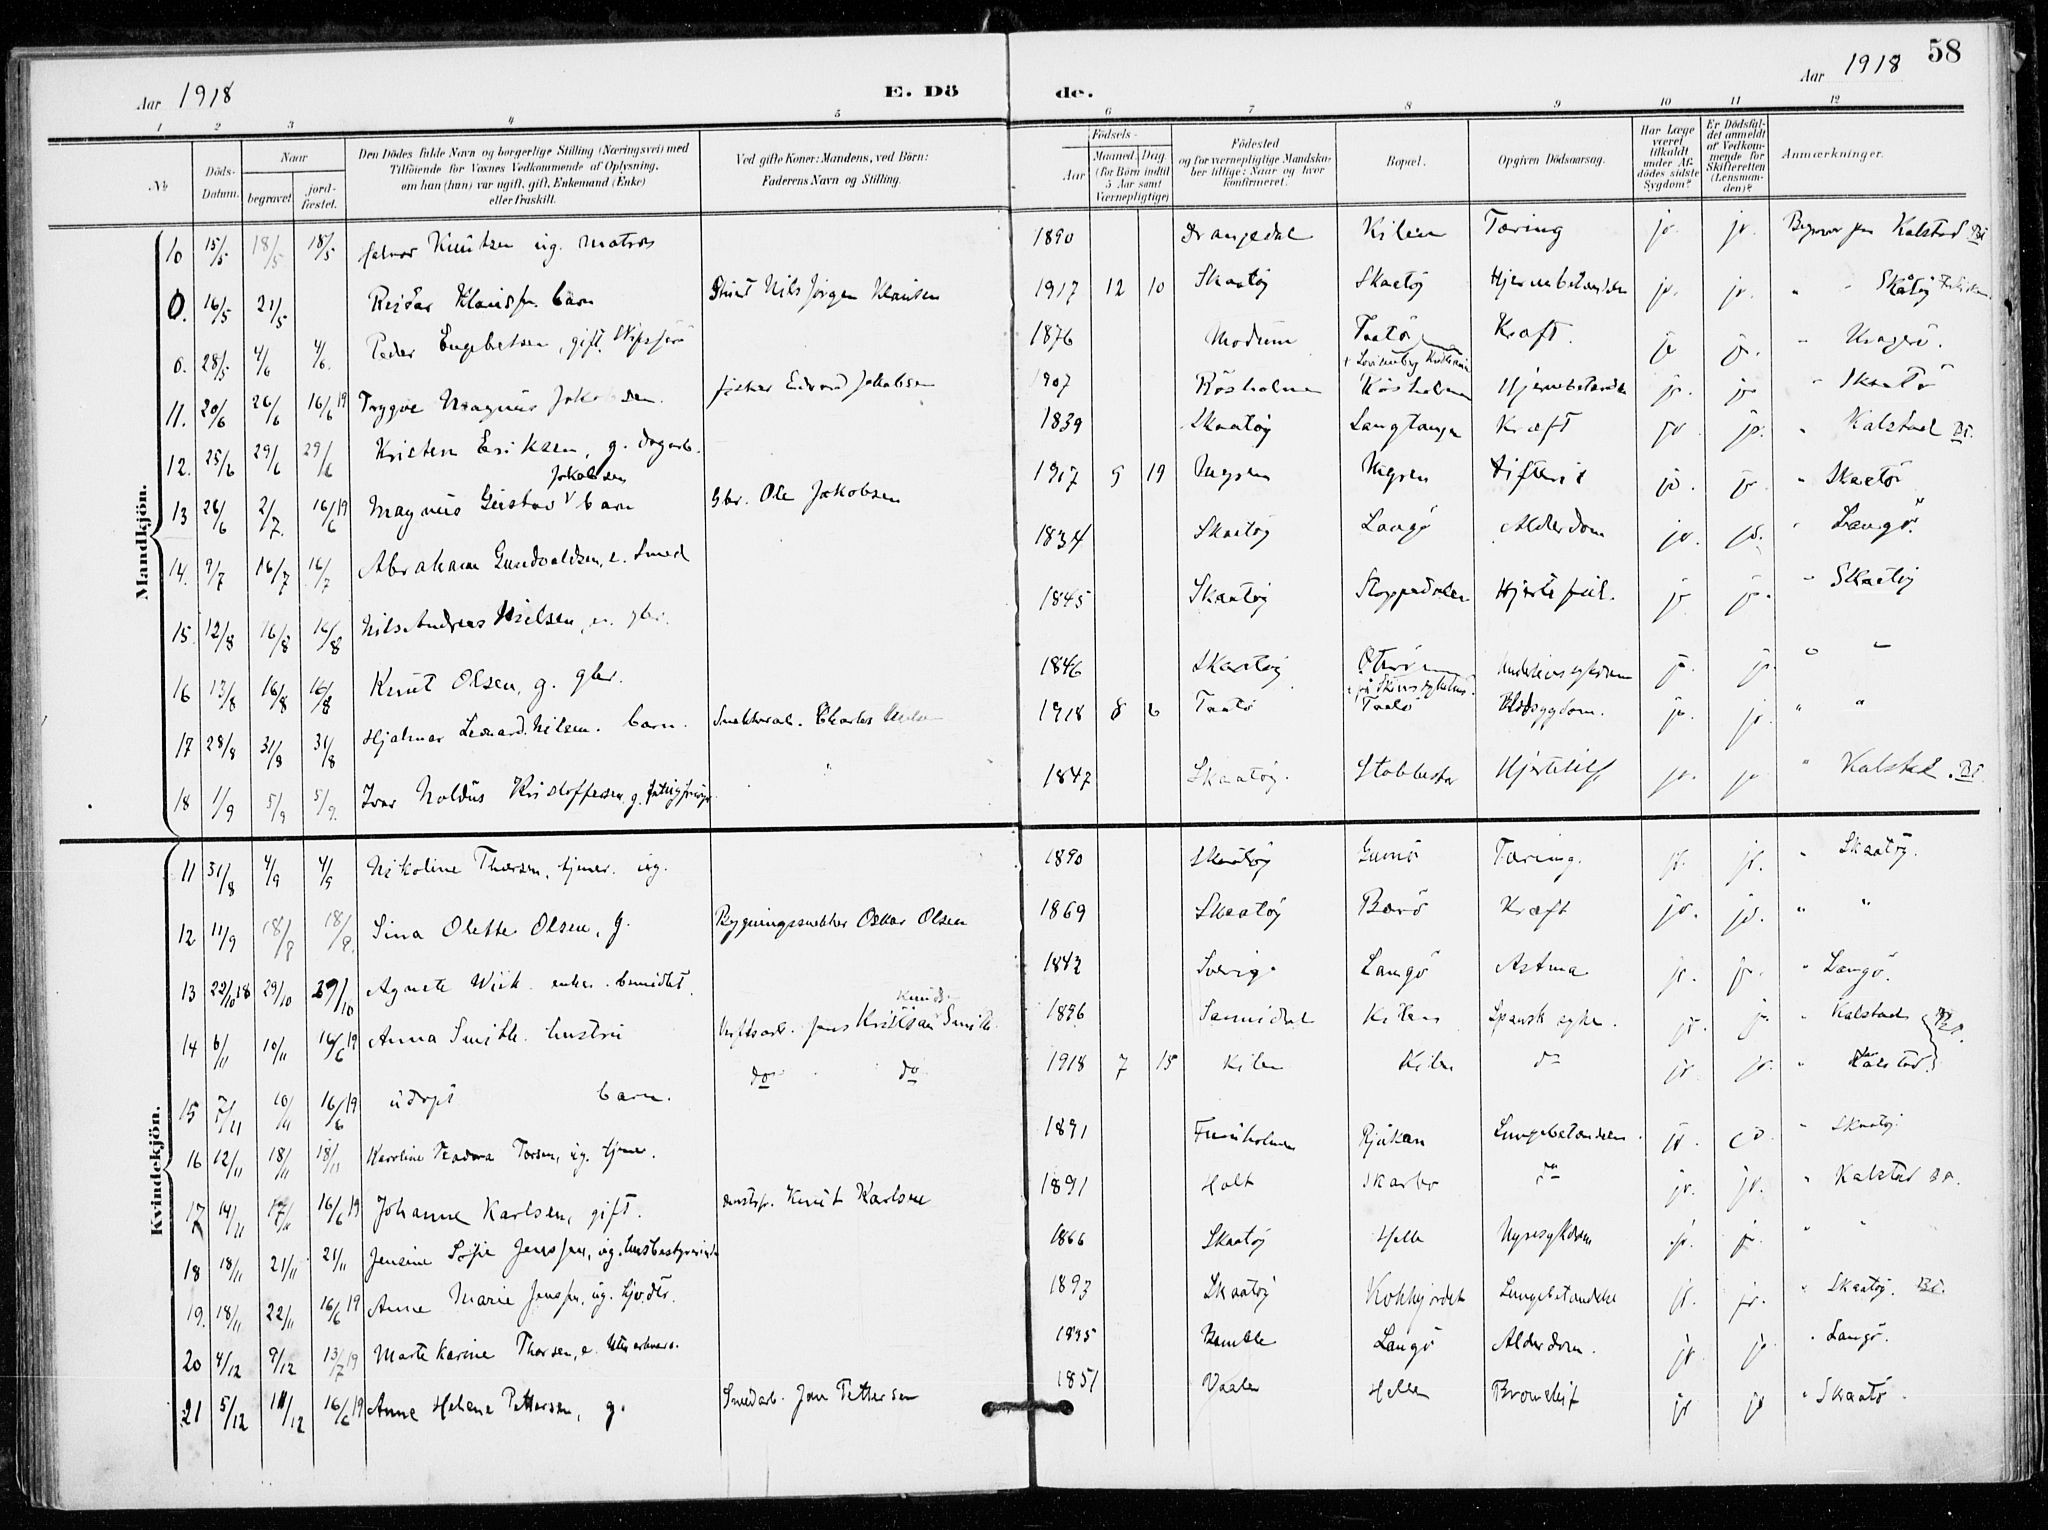 58
Aar 1918 E. Dö de. Aar 1918
1 2 3 4 5 6 7 8 9 10 11 12
No
Döds-Datum.
Naar
begravet
jord-fæstet.
Den Dödes fulde Navn og borgerlige Stilling (Næringsvei) med
Tilföiende for Voxnes Vedkommende af Oplysning,
om han (hun) var ugift, gift, Enkemand (Enke)
eller fraskilt.
Ved gifte Koner: Mandens, ved Börn:
Faderens Navn og Stilling.
Födsels-
Aar
Maaned. Dag.
(for Börn indtil 5 Aar samt Værnepligtige)
Födested
og for værnepligtige Mandskaber tillige: Naar og hvor konfirmeret.
Bopæl.
Opgiven Dödsaarsag.
Har Læge været tilkaldt under Afdödes sidste Sygdom?
Er Dödsfaldet anmeldt af Vedkommende for Skifteretten (Lensmanden)?
Anmærkninger.
Mandkjön.
10 15/5 18/5 18/5 Halvor Knutsen ug. matros 1890 Drangedal Kilen Tæring jo. jo. Kalstad
0. 16/5 21/5 Reidar barn Nils Jörgen Klausen 1917 12 10 Skaatöy Skaatöy Hjernebetændelse jo. jo. " Skåtöy
0. 28/5 4/6 4/6. Peder Engebretsen, gift. 1876 Modum Taatö Kræft. jo jo. " Kragerö.
11. 20/6 26/6 16/6 19 Trygve Magnus Jakobsen. fisker Edvard Jakobsen 1907 Rösholmen Rösholmen Hjernebetændelse jo. jo " Skaatö
12. 25/6 29/6 29/6 Kristen Eriksen, g. dagarb. 1839 Skaatöy Langtangen Kræft jo. jo. " Kalstad
13 26/6 2/7. 16/6 19 Magnus Gustav Jakobsen barn Gbr. Ole Jakobsen 1917 5 19 Difterit jo. jo. " Skaatö
14. 9/7 16/7 16/7 Abraham Gundvaldsen, e. Smed 1834 Skaatöy Langö Alderdom jo. jo. " Langö.
15. 12/8 16/8 16/8 Nils Andreas Nielsen, e. gbr. 1845 Skaatöy Stoppedalen Hjertefeil. jo jo. " Skaatöy
16 13/8 16/8 16/8 Knut Olsen, g. gbr. 1846 Skaatöy jo. jo. " "
17 28/8 31/8 31/8 Hjalmar Leonard Nilsen. barn. Charles 1918 8 6 Taatö Taatö jo. jo. " "
18 1/9 5/9 5/9. Ivar Noldus Kristoffersen, g. 1847 Skaatöy. Stabbestad Hjertefeil jo. jo " Kalstad.
Kvindekjön.
11 31/8 4/9 4/9 Nikoline Thorsen, tjener. ug. 1890 Skaatöy Gumö Tæring. jo. jo. " Skaatöy.
12 11/9 18/9 18/9. Sina Olette Olsen, g. Bygningssnekker Oskar Olsen 1869 Skaatöy Barö Kræft jo. jo. " "
13 22/10 18 29/10 29/10 Agnete Wiik enke. 1843 Sverige Langö Astma jo. jo. " Langö.
14 6/11 10/11 16/6 19 Anna Smith. hustru Jens Kristian Smith. 1896 Sannidal Kilen Spansk syke. jo. jo " Kalstad
15 7/11 10/11 16/6 19 udöpt barn. do do. 1918 7 15 Kilen Kilen do jo. jo. " Kalstad.
16 12/11 18/11 18/11 Karoline Teodora Torsen, ug. tjener. 1891 Furuholmen Rjukan Lungebetændelse. jo jo. " Skaatöy
17 14/11 17/11 16/6 19 Johanne Karlsen, gift. Knut Karlsen 1891 Holt Skarbo do jo. jo. " Kalstad
18 18/11 21/11 21/11 Jensine Sofie Jenssen, ug. husbestyrerinde 1866 Skaatöy Helle Nyresykdom jo. jo. " "
19. 18/11 22/11 16/6 19 Anne Marie Jenssen, ug. 1893 Skaatöy Lungebetændelse jo. jo. " Skaatöy.
20 4/12 9/12 13/7 19 Marte Karine Thorsen, e. Bamble Langö Alderdom. jo jo. " Langö.
21 5/12 11/12 16/6 19 Anne Helene Pettersen, g. Smedarb. Jon Pettersen 1851 Vaaler Hellen jo jo " Skaatö.